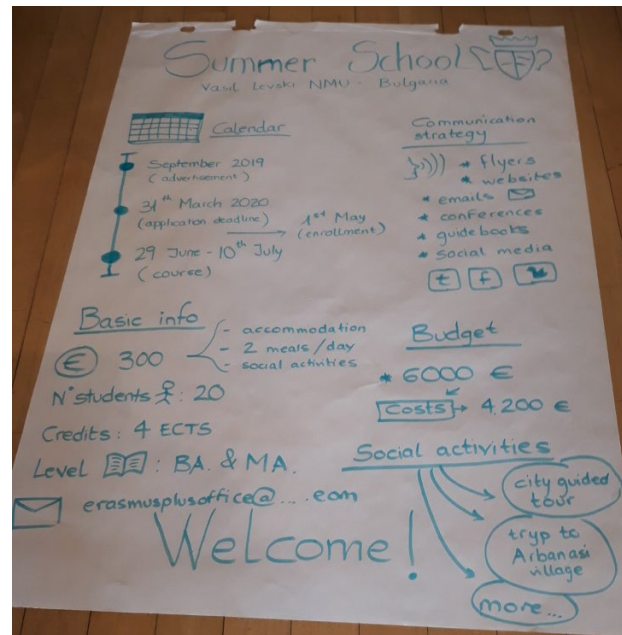 Summer School
Vasil Levski NMU - Bulgaria
Calendar
September 2019
(advertisement)
31th March 2020
(application deadline)
1st May
(enrollment)
29 June - 10th July
(course)
Communication
strategy
* flyers
* websites
* emails
* conferences
* guidebooks
* social media
t f
Basic info
€ 300
- accommodation
- 2 meals/day
- social activities
N° students : 20
Credits : 4 ECTS
Level : BA. & MA.
erasmusplusoffice@....com
Budget
* 6000 €
Costs → 4,200 €
Social activities
city guided
tour
tryp to
Arbanasi
village
more...
Welcome!